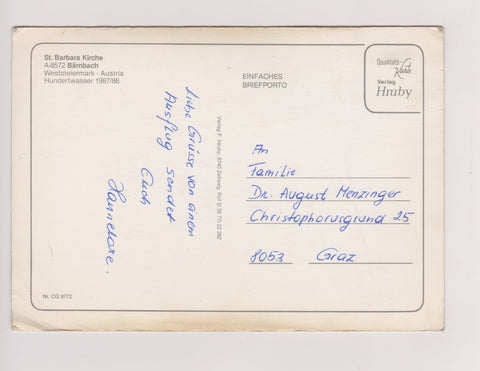 St. Barbara Kirche
A-8572 Bärnbach
Weststeiermark - Austria
Hundertwasser 1987/88
EINFACHES
BRIEFPORTO
Qualitäts-
Karte
Verlag
Hruby
Liebe Grüsse von einem
Ausflug sendet
Euch
Hannelore.
Verlag F. Hruby, 8740 Zeltweg, Ruf 0 35 77/ 22 282
An
Familie
Dr. August Menzinger
Christophorusgrund 25
8053 Graz
Nr. CO 9772